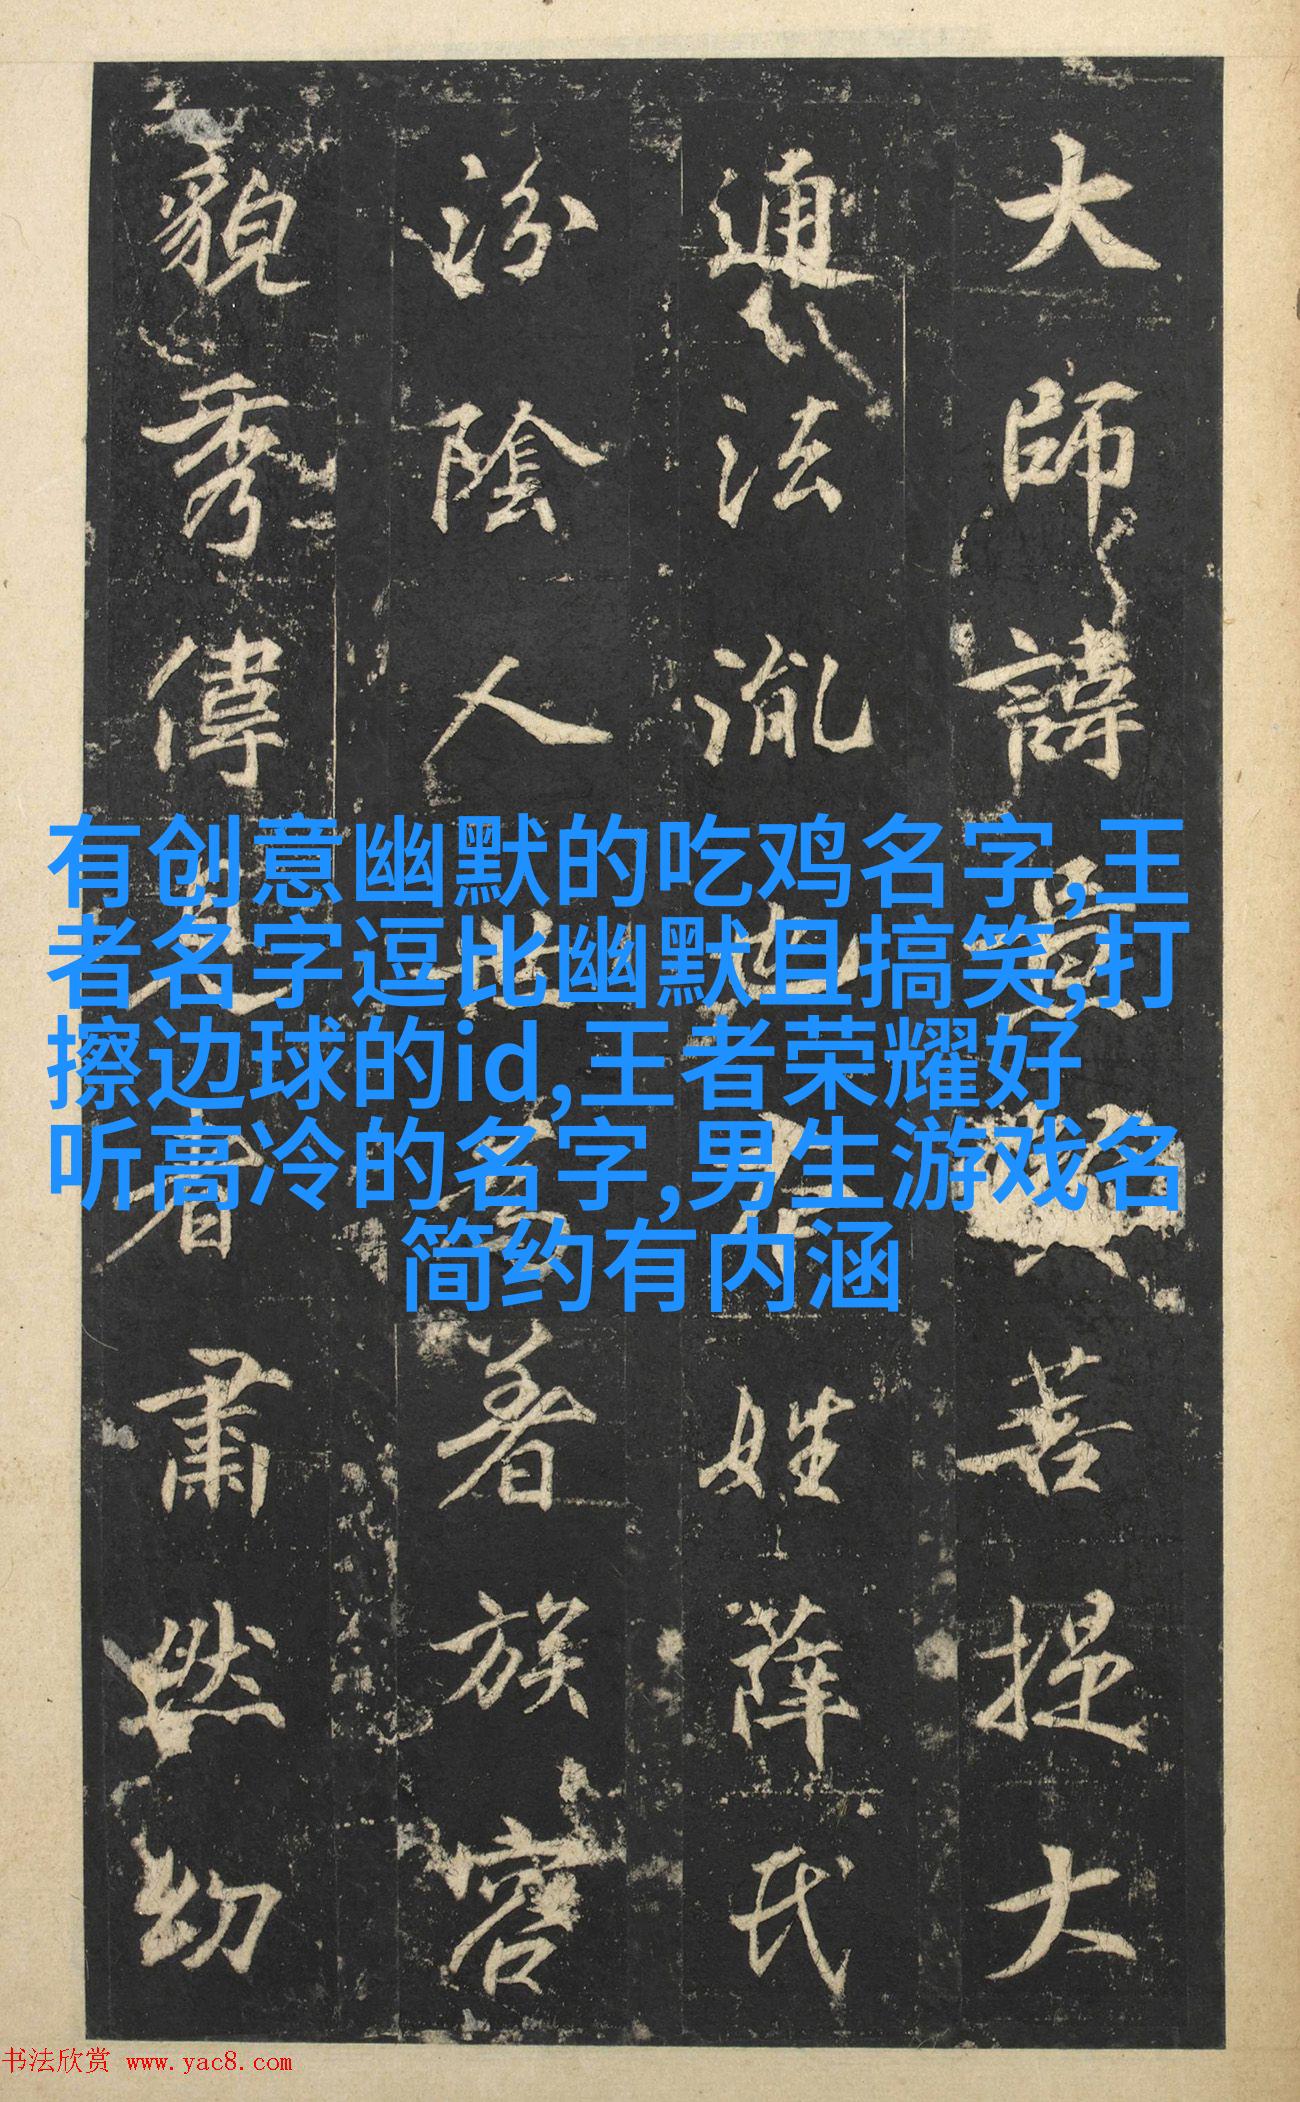 大師諱景菩提大
通法胤也姓薛氏
汾陰人世為著族容
貌秀偉見者肅然幼
有创意幽默的吃鸡名字,王
者名字逗比幽默且搞笑,打
擦边球的id,王者荣耀好
听高冷的名字,男生游戏名
简约有内涵
书法欣赏 www.yac8.com